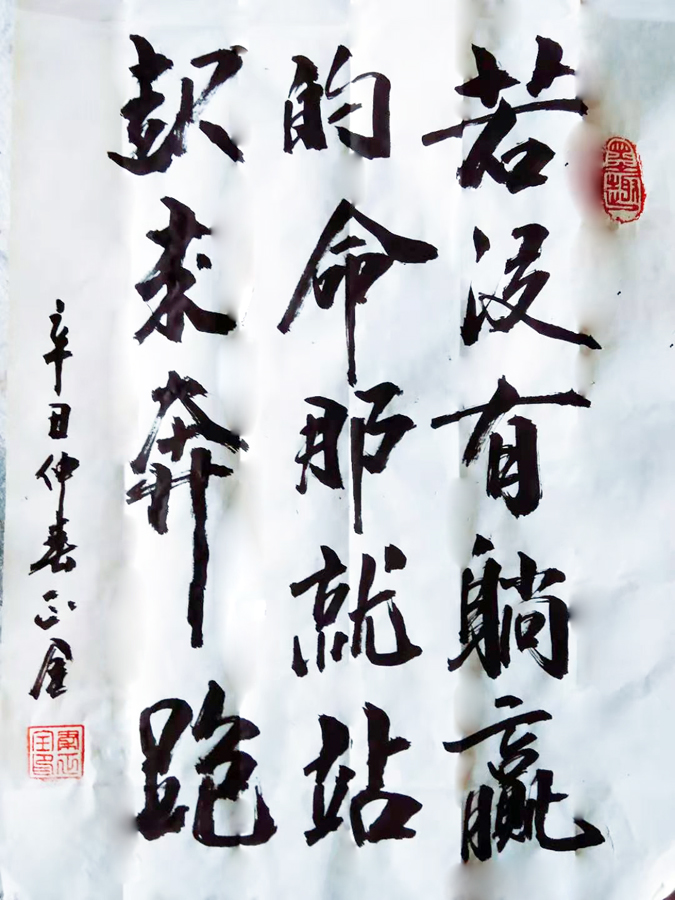 墨趣
若没有躺赢
的命那就站
起来奔跑
辛丑仲春正全